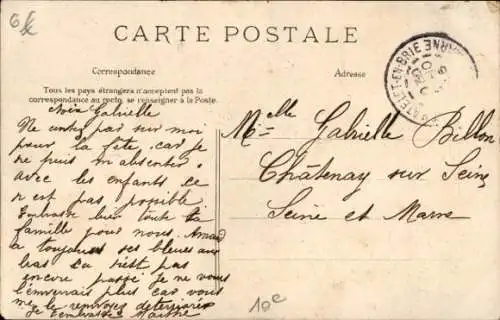 CARTE POSTALE
Correspondance
Adresse
Tous les pays étrangers n'acceptent pas la
correspondance au recto se renseigner à la Poste.
CHATELET-EN-BRIE
MARNE
Gabrielle
Ne pas sur moi
pour la fête, car je
ne puis m'absenter
avec les enfants ce
n'est pas possible
Embrasse bien toute la
famille pour nous.
a toujours ses bleues aux
bas
encore passé je ne vous
l'enverrais plus car vous
me le
Je t'embrasse
Melle Gabrielle Billon
Châtenay sur Seine
Seine et Marne
10e